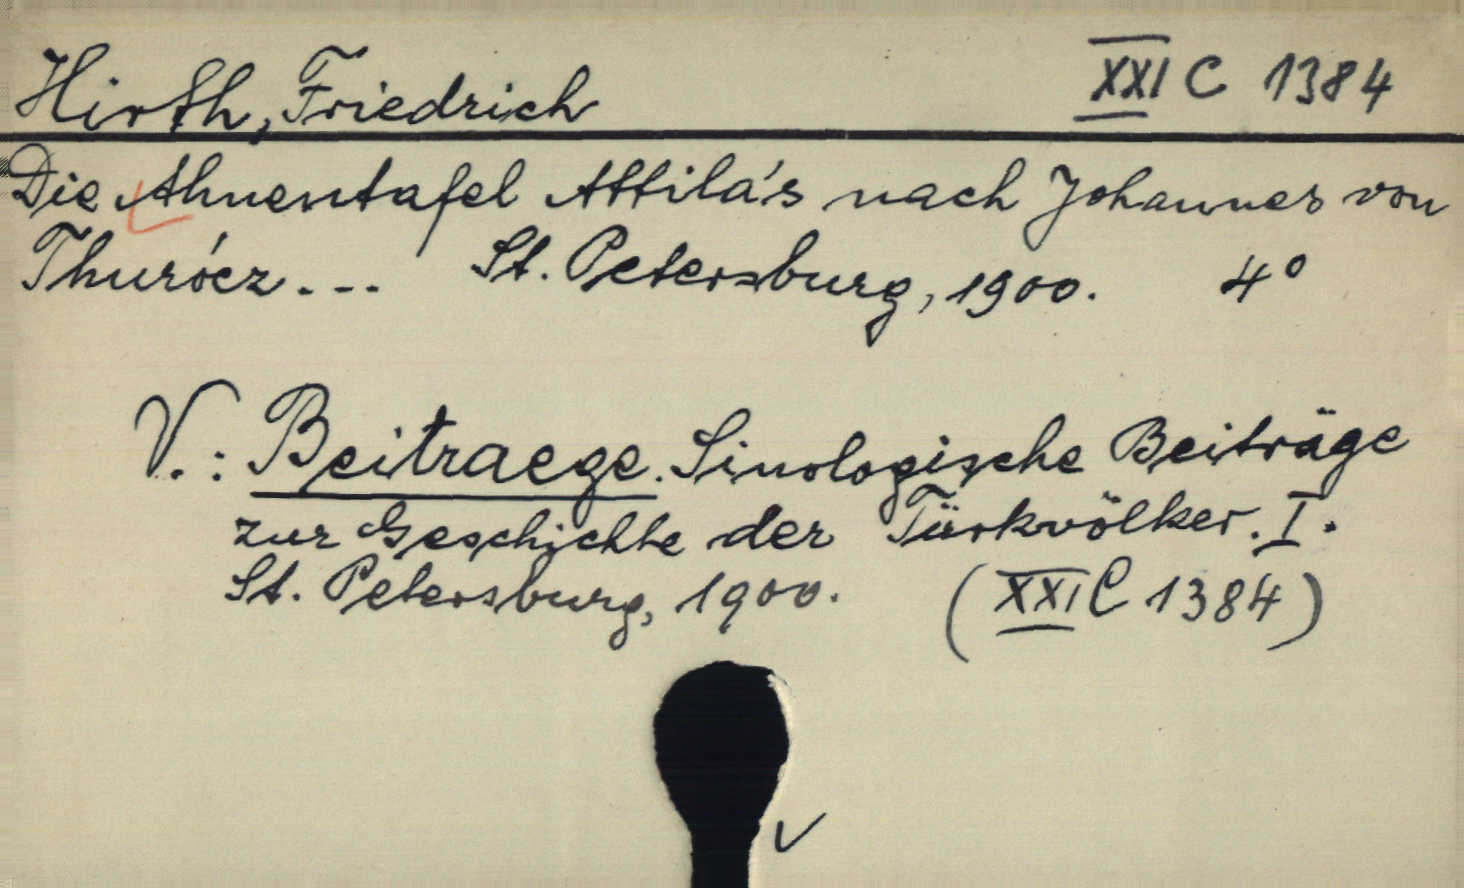 Hirth, Friedrich XXI C 1384
Die Ahnentafel Attila's nach Johannes von
Thurócz... St. Petersburg, 1900. 4°
V.: Beitraege. Sinologische Beiträge
zur Geschichte der Türkvölker. I.
St. Petersburg, 1900. (XXI C 1384)